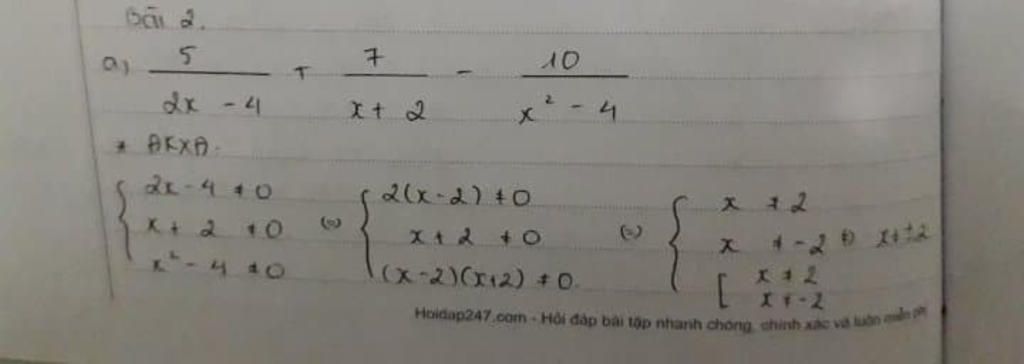 Bài 2.
a) 5/(2x - 4) + 7/(x + 2) - 10/(x² - 4)
* ĐKXĐ:
{ 2x - 4 ≠ 0 (=) { 2(x - 2) ≠ 0 (=) { x ≠ 2
x + 2 ≠ 0 x + 2 ≠ 0 x ≠ -2 (=) x ≠ ±2
x² - 4 ≠ 0 (x - 2)(x + 2) ≠ 0. [ x ≠ 2
x ≠ -2
Hoidap247.com - Hỏi đáp bài tập nhanh chóng, chính xác và luôn miễn phí